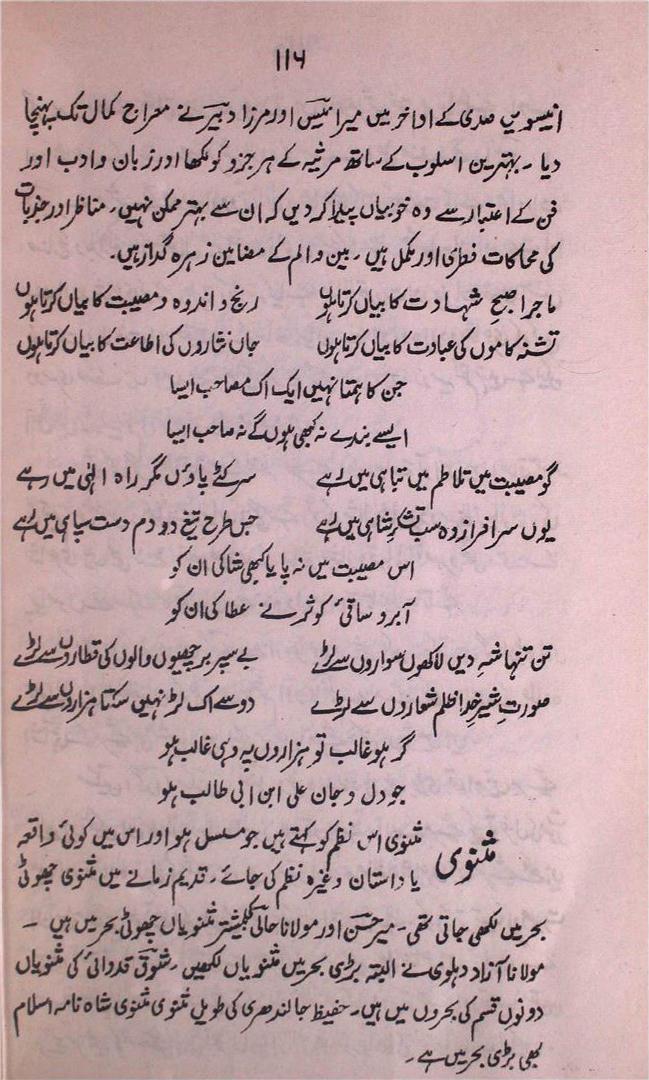 ۱۱۶
انیسویں صدی کے اواخر میں میر انیسؔ اور مرزا دبیرؔ نے معراج کمال تک پہنچا
دیا ۔ بہترین اسلوب کے ساتھ مرثیہ کے ہر جزو کو لکھا اور زبان و ادب اور
فن کے اعتبار سے وہ خوبیاں پیدا کر دیں کہ ان سے بہتر ممکن نہیں ۔ مناظر اور جذبات
کی محاکات فطری اور مکمل ہیں ۔ بین و الم کے مضامین زہرہ گداز ہیں۔
ماجرا صبحِ شہادت کا بیاں کرتا ہوں رنج و اندوہ و مصیبت کا بیاں کرتا ہوں
تشنہ کاموں کی عبادت کا بیاں کرتا ہوں جاں نثاروں کی اطاعت کا بیاں کرتا ہوں
جن کا ہمتا نہیں ایک اک مصاحب ایسا
ایسے بندے نہ کبھی ہوں گے نہ صاحب ایسا
گو مصیبت میں تلاطم میں تباہی میں رہے سر کٹے پاؤں مگر راہ الٰہی میں رہے
یوں سر افراز وہ سب لشکرِ شاہی میں رہے جس طرح تیغ دو دم دست سپاہی میں رہے
اس مصیبت میں نہ پایا کبھی شاکی ان کو
آبرو ساقیٔ کوثر نے عطا کی ان کو
تن تنہا شہِ دیں لاکھوں سواروں سے لڑے بے سپر برچھیوں والوں کی قطاروں سے لڑے
صورتِ شیرِ خدا ظلم شعاروں سے لڑے دو سے اک لڑ نہیں سکتا ہزاروں سے لڑے
گر ہو غالب تو ہزاروں پہ وہی غالب ہو
جو دل و جان علی ابن ابی طالب ہو
مثنوی
مثنوی اس نظم کو کہتے ہیں جو مسلسل ہو اور اس میں کوئی واقعہ
یا داستان وغیرہ نظم کی جائے ۔ قدیم زمانے میں مثنوی چھوٹی
بحر میں لکھی جاتی تھی ۔ میر حسنؔ اور مولانا حالیؔ کی بیشتر مثنویاں چھوٹی بحر میں ہیں ۔
مولانا آزاد دہلوی نے البتہ بڑی بحر میں مثنویاں لکھیں ۔ شوقؔ قدوائی کی مثنویاں
دونوں قسم کی بحروں میں ہیں ۔ حفیظ جالندھری کی طویل مثنوی مثنوی شاہ نامہ اسلام
بھی بڑی بحر میں ہے ۔